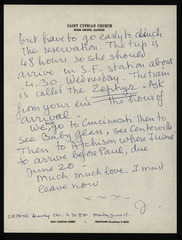 SAINT CYPRIAN CHURCH
RIVER GROVE, ILLINOIS
but have to go early to clinch
the reservation. The trip is
48 hours so she should
arrive in S.F. station about
4.30 Wednesday. The train
is called the Zephyr. Ask
from your end the hour of
arrival.
We go to Cincinnati then to
see Baby glass, see Centerville
Then to Atchison where I wish
to arrive before Paul, due
June 20
Much much love. I must
leave now
J
leaving Chi. 4:30 PM Monday June